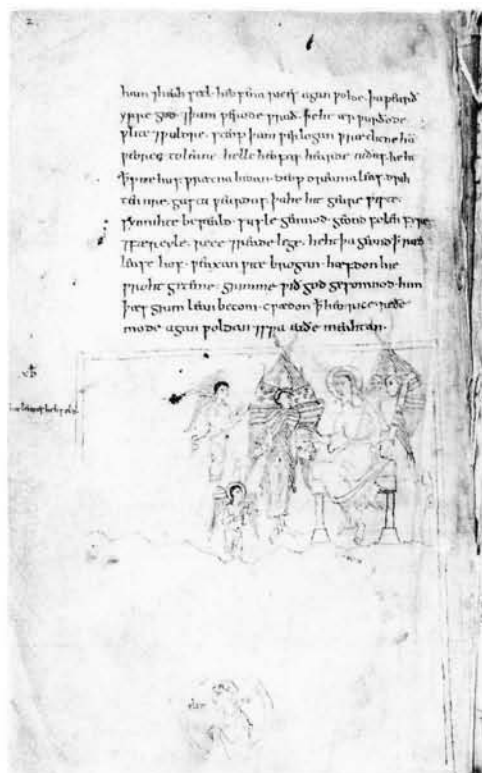 ham ⁊ heah setl. heofena rices agan wolde. þa wearð
yrre god ⁊ þam werode wrað. þe he ær wurðode
wlite ⁊ wuldre. sceop þam werlogan wræclicne ha
weorce to leane. helle heafas. hearde niðas. heht
ꝥ wite hus wræcna bidan. deop dreama leas. driht
en ure. gasta weardas. þa he hit geare wiste.
synnihte beseald. susle geinnod. geond folen fyre
⁊ færcyle. rece ⁊ reade lege. heht þa geond ꝥ ræd
lease hof. weaxan wite brogan. hæfdon hie
wroht geteme. grimme wið god gesomnod. him
þæs grim lean becom. cwædon ꝥ heo rice. reðe
mode agan woldan. ⁊ swa eaðe meahtan.